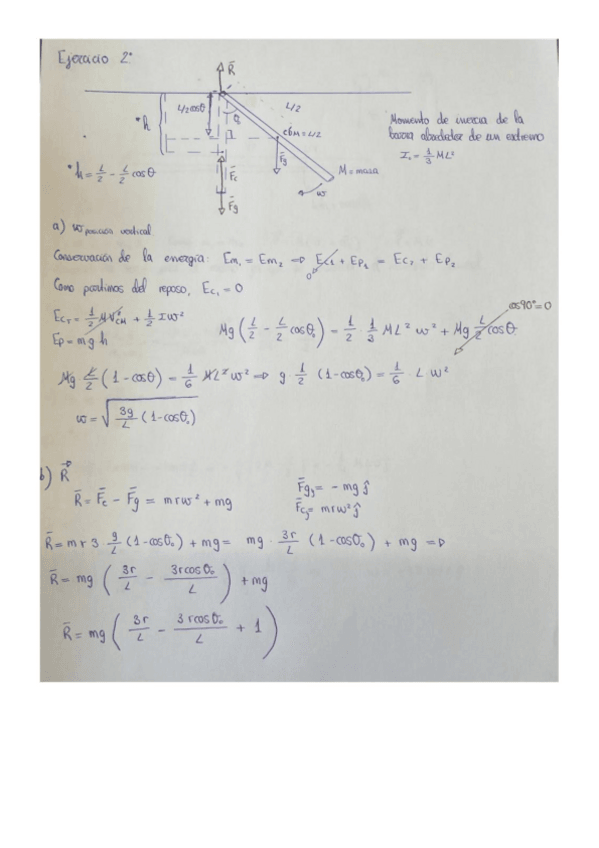 Ejercicio 2:
R̄
L/2 cosθ
L/2
*h
θ
CDM = L/2
F̄g
M = masa
F̄c
ω
F̄g
Momento de inercia de la
barra alrededor de un extremo
I₀ = 1/3 ML²
*h = L/2 - L/2 cosθ
a) ω posición vertical
Conservación de la energía: Em₁ = Em₂ ⇒ Ec₁ + Ep₁ = Ec₂ + Ep₂
0
Como partimos del reposo, Ec₁ = 0
cos90° = 0
Ec₂ = 1/2 MV²CM + 1/2 Iω²
Ep = mgh
Mg (L/2 - L/2 cosθ₀) = 1/2 · 1/3 ML² ω² + Mg L/2 cosθ
Mg L/2 (1 - cosθ) = 1/6 ML² ω² ⇒ g · 1/2 (1 - cosθ₀) = 1/6 · L ω²
ω = √(3g/L (1 - cosθ₀))
b) R⃗
R̄ = F̄c - F̄g = mrω² + mg
F̄gⱼ = - mg ĵ
F̄cⱼ = mrω² ĵ
R̄ = m r 3 · g/L (1 - cosθ₀) + mg = mg · 3r/L (1 - cosθ₀) + mg ⇒
R̄ = mg (3r/L - 3rcosθ₀/L) + mg
R̄ = mg (3r/L - 3rcosθ₀/L + 1)